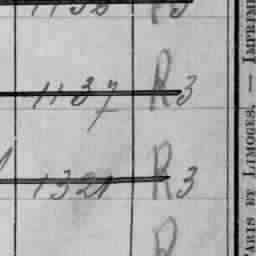 1137 R3
1321 R3
R
PARIS ET LIMOGES. — IMPRIM